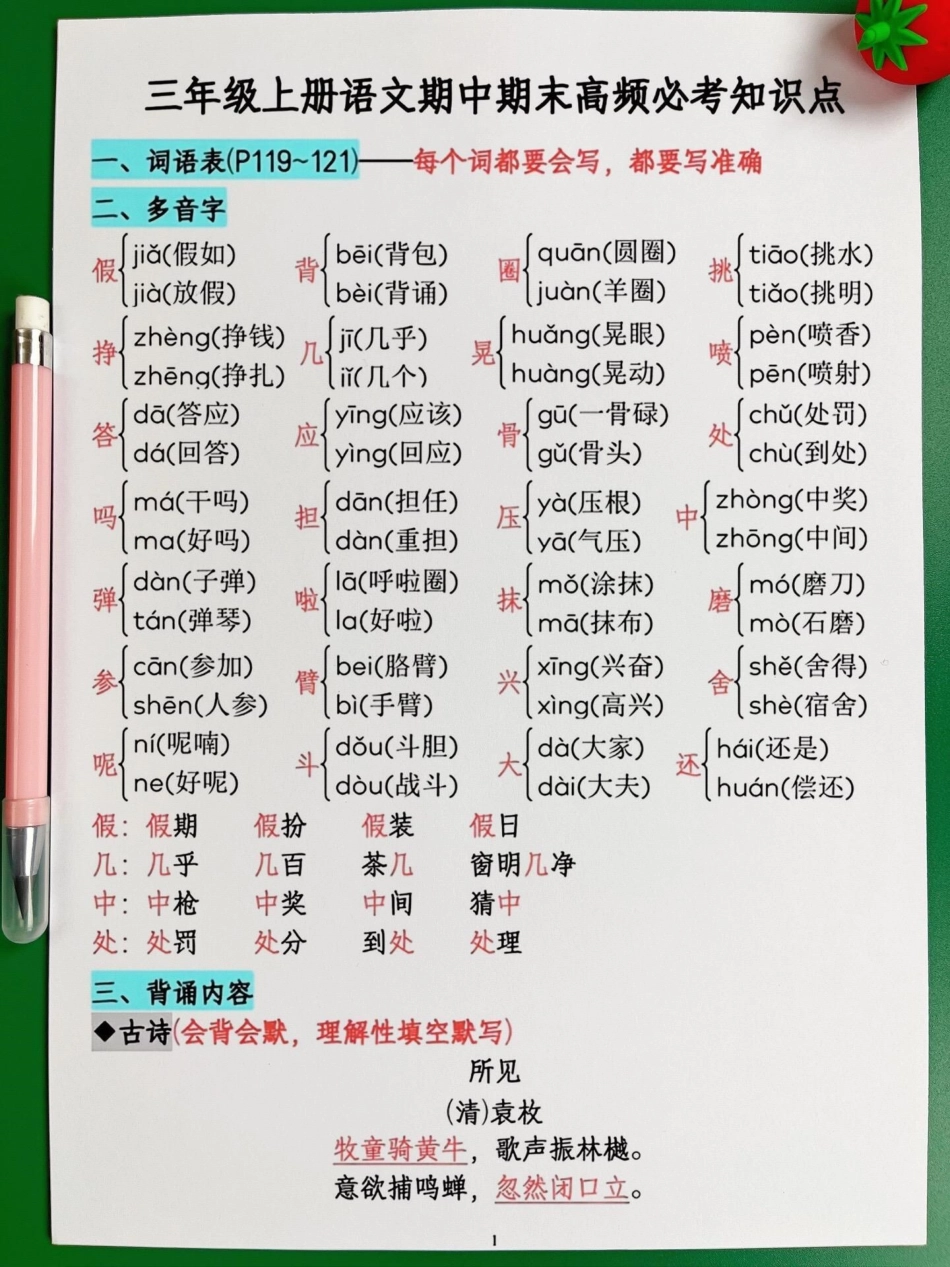 三年级上册语文期中期末高频必考知识点
一、词语表(P119~121)——每个词都要会写，都要写准确
二、多音字
假 jiǎ(假如) 背 bēi(背包) 圈 quān(圆圈) 挑 tiāo(挑水)
jià(放假) bèi(背诵) juàn(羊圈) tiǎo(挑明)
挣 zhèng(挣钱) 几 jī(几乎) 晃 huǎng(晃眼) 喷 pèn(喷香)
zhēng(挣扎) jǐ(几个) huàng(晃动) pēn(喷射)
答 dā(答应) 应 yīng(应该) 骨 gū(一骨碌) 处 chǔ(处罚)
dá(回答) yìng(回应) gǔ(骨头) chù(到处)
吗 má(干吗) 担 dān(担任) 压 yà(压根) 中 zhòng(中奖)
ma(好吗) dàn(重担) yā(气压) zhōng(中间)
弹 dàn(子弹) 啦 lā(呼啦圈) 抹 mǒ(涂抹) 磨 mó(磨刀)
tán(弹琴) la(好啦) mā(抹布) mò(石磨)
参 cān(参加) 臂 bei(胳臂) 兴 xīng(兴奋) 舍 shě(舍得)
shēn(人参) bì(手臂) xìng(高兴) shè(宿舍)
呢 ní(呢喃) 斗 dǒu(斗胆) 大 dà(大家) 还 hái(还是)
ne(好呢) dòu(战斗) dài(大夫) huán(偿还)
假：假期 假扮 假装 假日
几：几乎 几百 茶几 窗明几净
中：中枪 中奖 中间 猜中
处：处罚 处分 到处 处理
三、背诵内容
◆古诗(会背会默，理解性填空默写)
所见
(清)袁枚
牧童骑黄牛，歌声振林樾。
意欲捕鸣蝉，忽然闭口立。
1